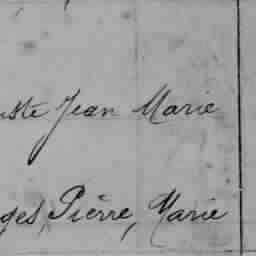 uste Jean Marie
ges, Pierre, Marie